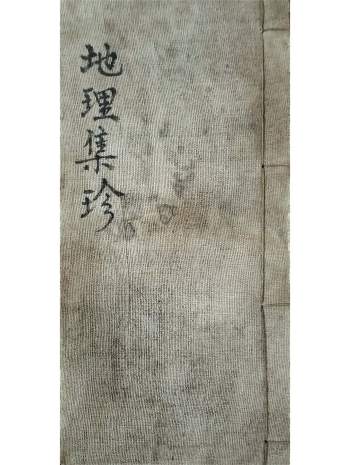 地理集珍